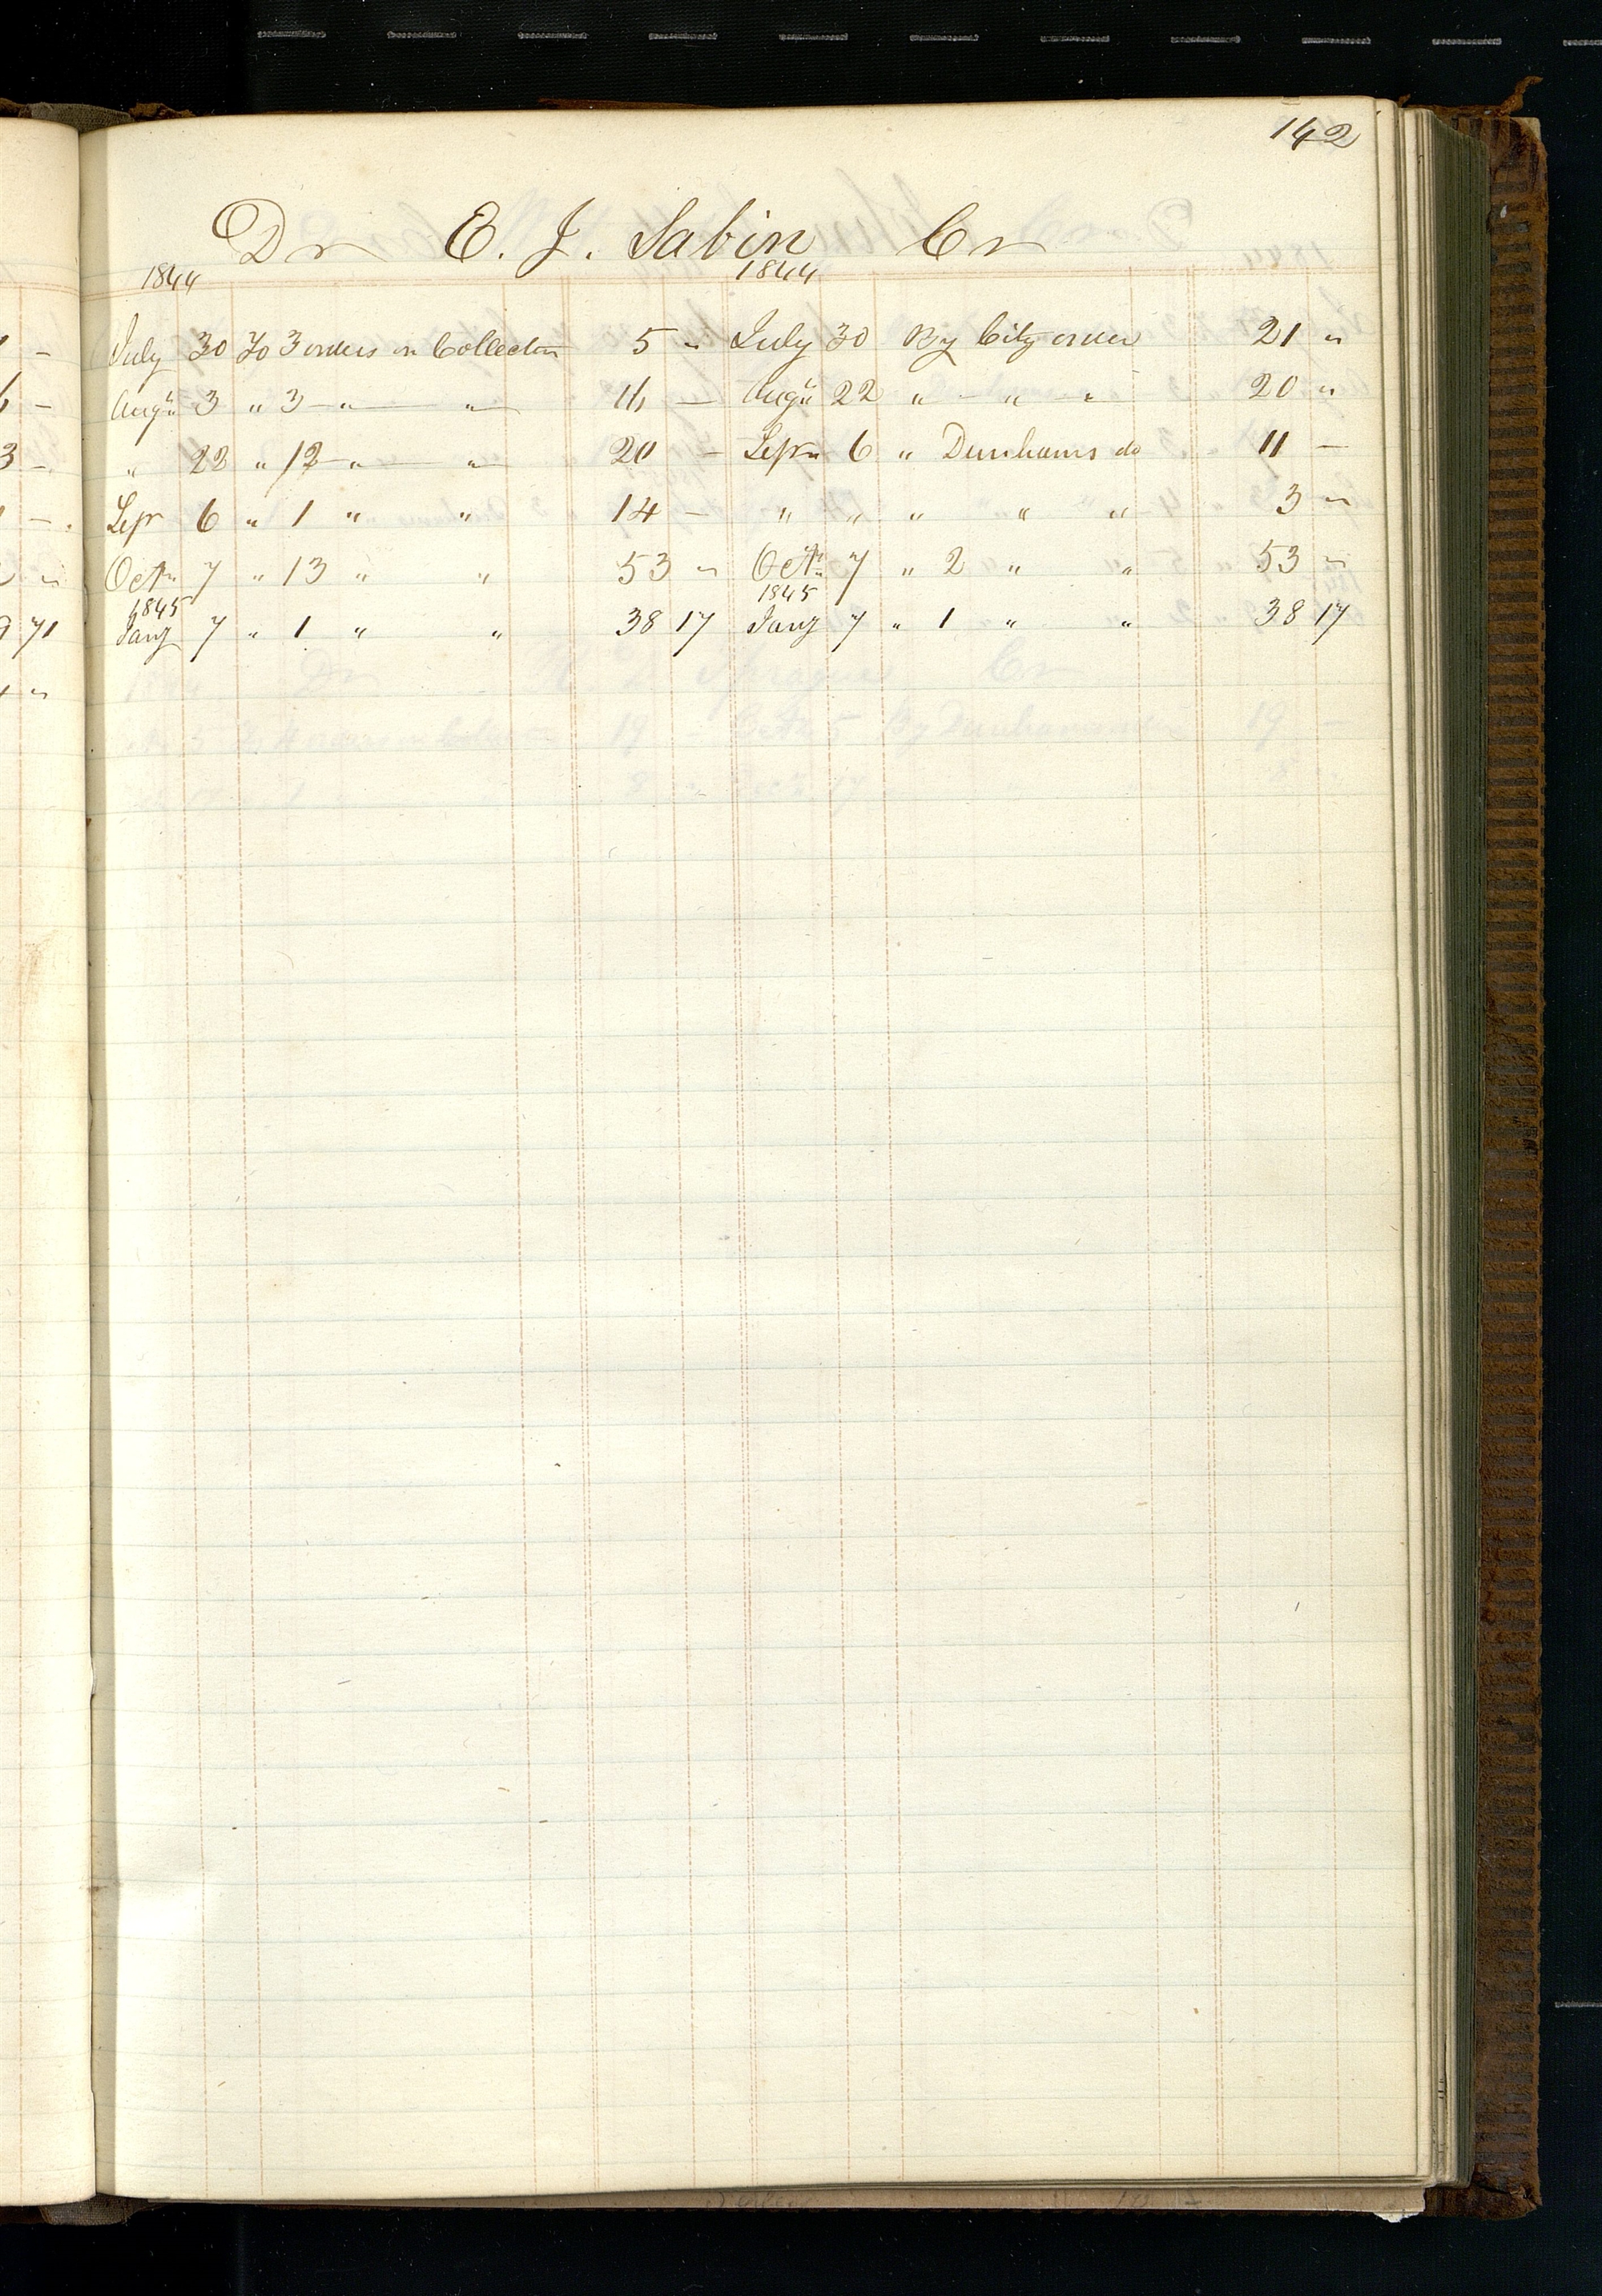 142
Dr E. J. Sabin Cr
1844 1844
July 30 To 3 orders on Collector 5 " July 30 By City order 21 "
Augu 3 " 3 " " 16 — Augu 22 " " " 20 "
" 22 " 12 " " 20 — Sepr 6 " Dunhams do 11 —
Sepr 6 " 1 " " 14 — " " " " " 3 "
Octr 7 " 13 " " 53 " Octr 7 " 2 " " 53 "
1845 1845
Jany 7 " 1 " " 38 17 Jany 7 " 1 " " 38 17